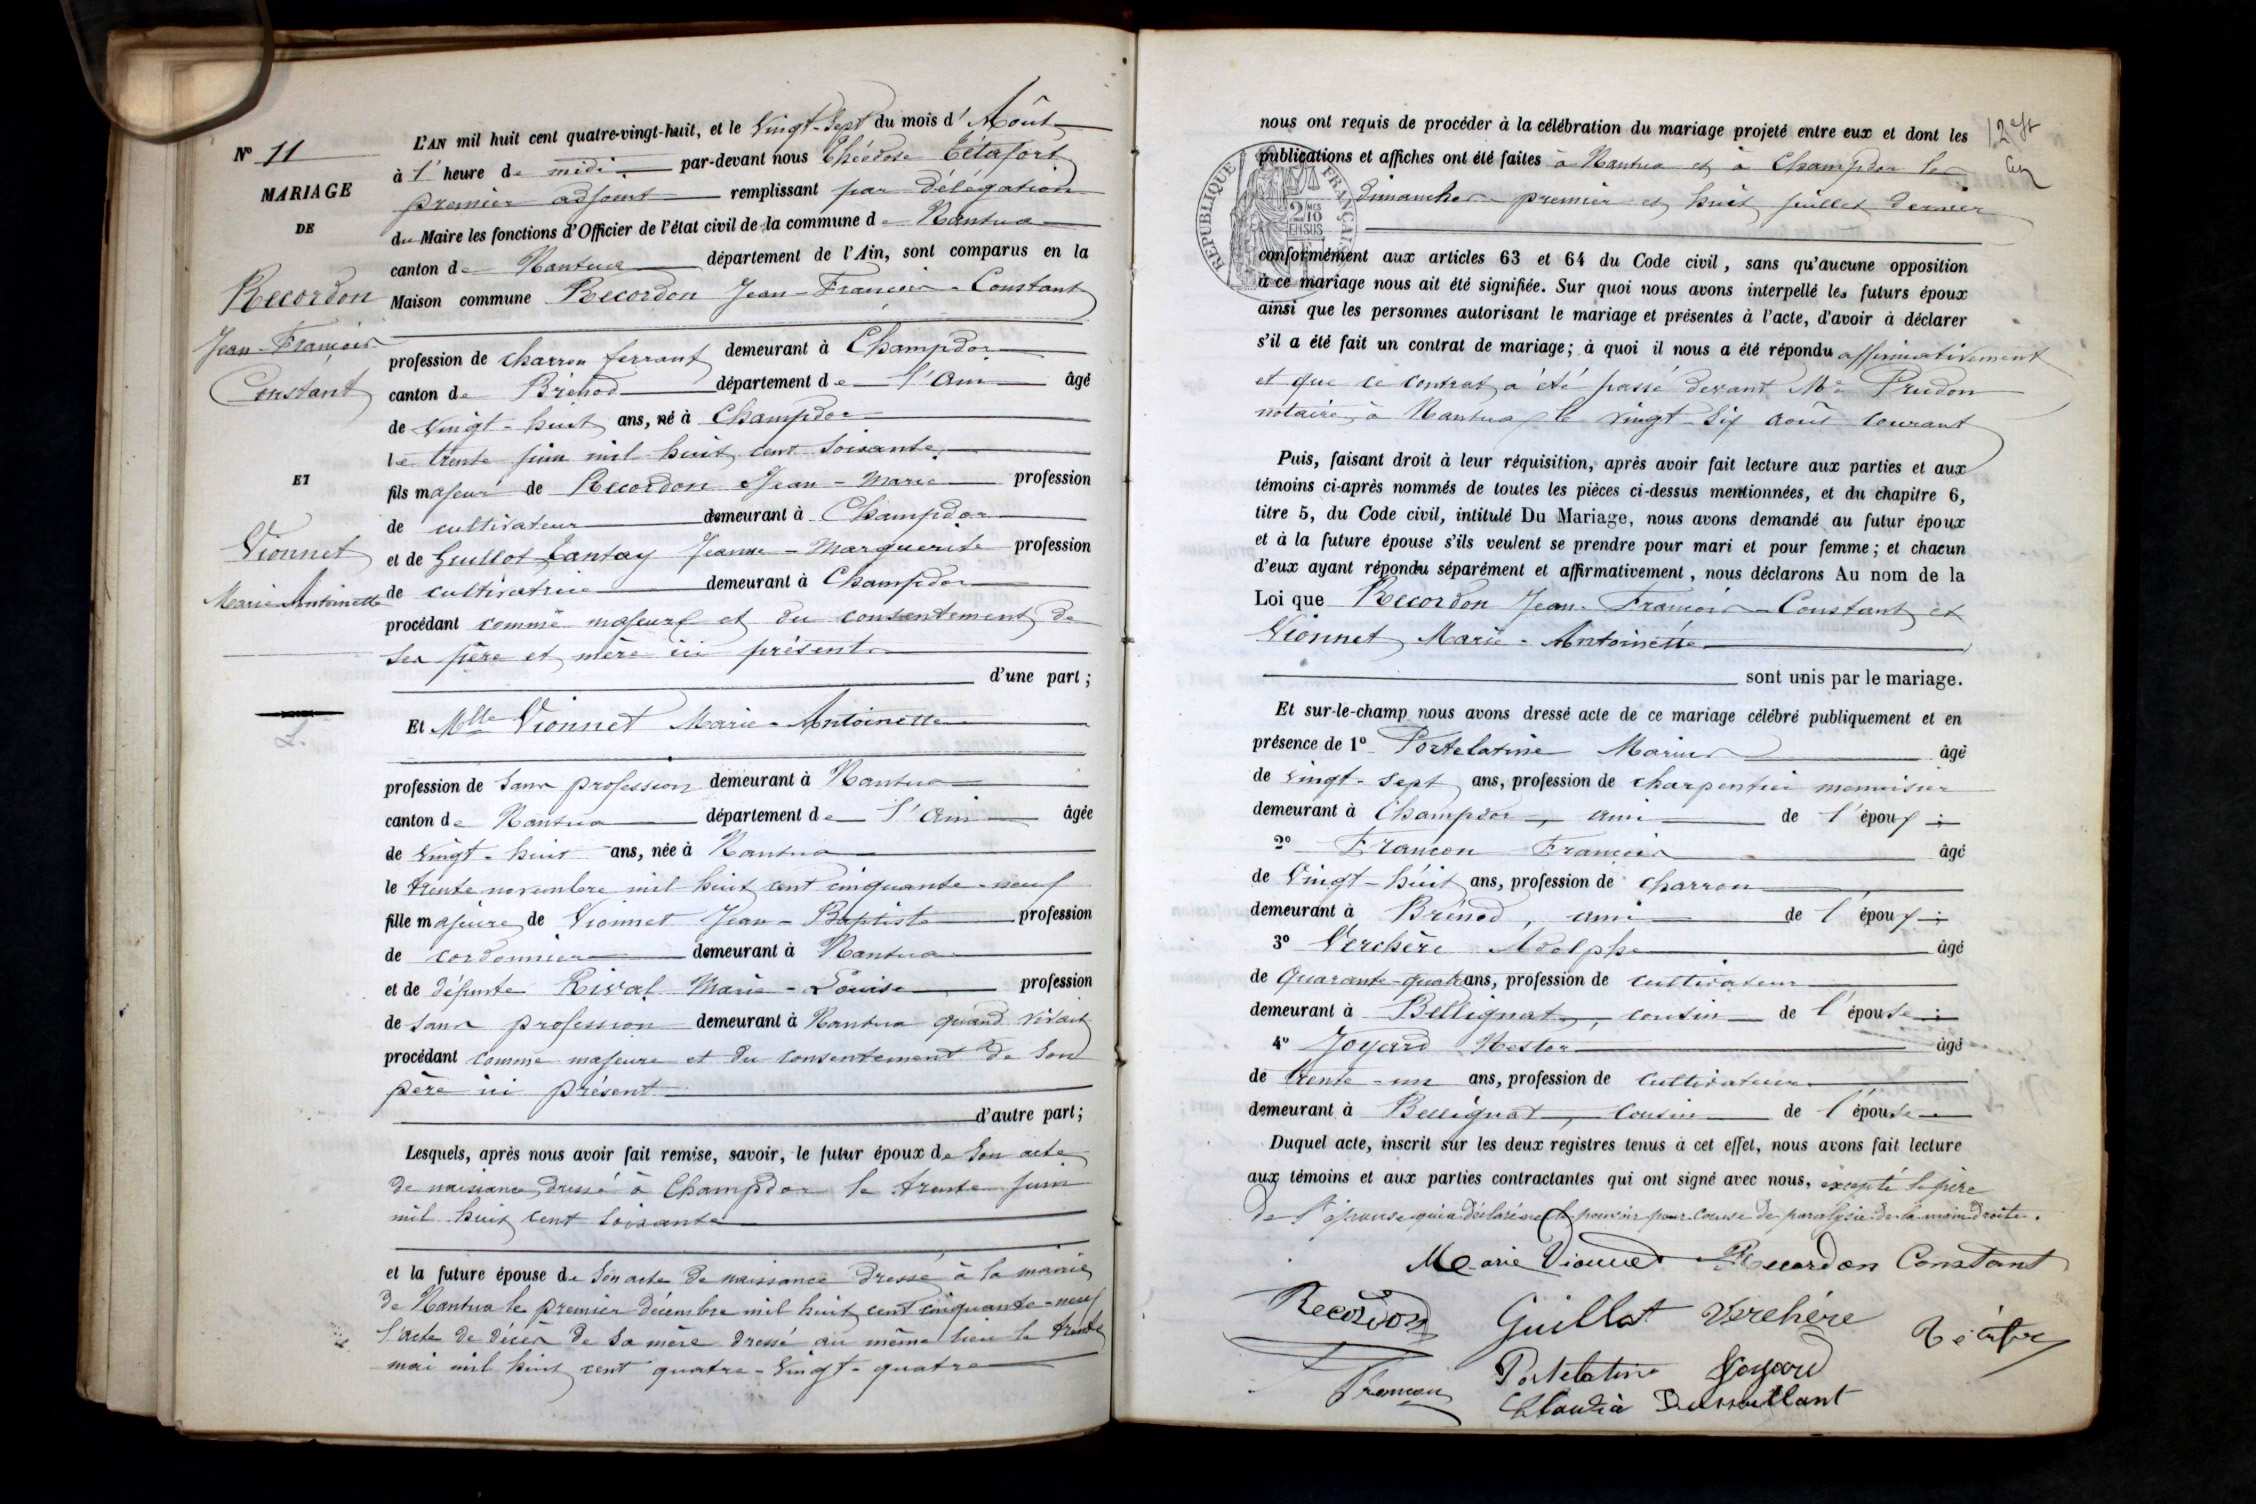 N° 11
MARIAGE
DE
Recordon
Jean-François
Constant
ET
Vionnet
Marie Antoinette
L'AN mil huit cent quatre-vingt-huit, et le Vingt-Sept du mois d'Août
à l'heure de midi par-devant nous Théodose Tétafort
premier adjoint remplissant par délégation
du Maire les fonctions d'Officier de l'état civil de la commune de Nantua
canton de Nantua département de l'Ain, sont comparus en la
Maison commune Recordon Jean-François-Constant
profession de charron ferrant demeurant à Champdor
canton de Brénod département de l'Ain âgé
de Vingt-huit ans, né à Champdor
le trente juin mil huit cent soixante
fils majeur de Recordon Jean-Marie profession
de cultivateur demeurant à Champdor
et de Guillot Tantay Jeanne-Marguerite profession
de cultivatrice demeurant à Champdor
procédant comme majeur et du consentement de
ses père et mère ici présents
d'une part;
Et Mlle Vionnet Marie-Antoinette
profession de sans profession demeurant à Nantua
canton de Nantua département de l'Ain âgée
de Vingt-huit ans, née à Nantua
le trente novembre mil huit cent cinquante-neuf
fille majeure de Vionnet Jean-Baptiste profession
de cordonnier demeurant à Nantua
et de défunte Rival Marie-Louise profession
de sans profession demeurant à Nantua quand vivait
procédant comme majeure et du consentement de son
père ici présent
d'autre part;
Lesquels, après nous avoir fait remise, savoir, le futur époux de Son acte
de naissance dressé à Champdor le trente juin
mil huit cent soixante
et la future épouse de Son acte de naissance dressé à la mairie
de Nantua le premier décembre mil huit cent cinquante-neuf
l'acte de décès de sa mère dressé au même lieu le trente
mai mil huit cent quatre-vingt-quatre
nous ont requis de procéder à la célébration du mariage projeté entre eux et dont les
publications et affiches ont été faites à Nantua et à Champdor les
dimanches premier et huit juillet dernier
RÉPUBLIQUE FRANÇAISE
conformément aux articles 63 et 64 du Code civil, sans qu'aucune opposition
à ce mariage nous ait été signifiée. Sur quoi nous avons interpellé les futurs époux
ainsi que les personnes autorisant le mariage et présentes à l'acte, d'avoir à déclarer
s'il a été fait un contrat de mariage; à quoi il nous a été répondu affirmativement
et que ce contrat a été passé devant Me Prudon
notaire à Nantua le vingt-six août courant
Puis, faisant droit à leur réquisition, après avoir fait lecture aux parties et aux
témoins ci-après nommés de toutes les pièces ci-dessus mentionnées, et du chapitre 6,
titre 5, du Code civil, intitulé Du Mariage, nous avons demandé au futur époux
et à la future épouse s'ils veulent se prendre pour mari et pour femme; et chacun
d'eux ayant répondu séparément et affirmativement, nous déclarons Au nom de la
Loi que Recordon Jean-François-Constant et
Vionnet Marie-Antoinette
sont unis par le mariage.
Et sur-le-champ nous avons dressé acte de ce mariage célébré publiquement et en
présence de 1° Portelatine Marius âgé
de vingt-sept ans, profession de charpentier menuisier
demeurant à Champdor, ami de l'époux;
2° Françon François âgé
de Vingt-huit ans, profession de charron
demeurant à Brénod, ami de l'époux;
3° Verchère Adolphe âgé
de Quarante-quatre ans, profession de cultivateur
demeurant à Bellignat, cousin de l'épouse;
4° Joyard Nestor âgé
de trente-un ans, profession de cultivateur
demeurant à Bellignat, cousin de l'épouse
Duquel acte, inscrit sur les deux registres tenus à cet effet, nous avons fait lecture
aux témoins et aux parties contractantes qui ont signé avec nous, excepté le père
de l'épouse qui a déclaré ne le pouvoir pour cause de paralysie de la main droite.
Marie Vionnet Recordon Constant
Recordon Guillot Verchère
Françon Portelatine Joyard
Claudia